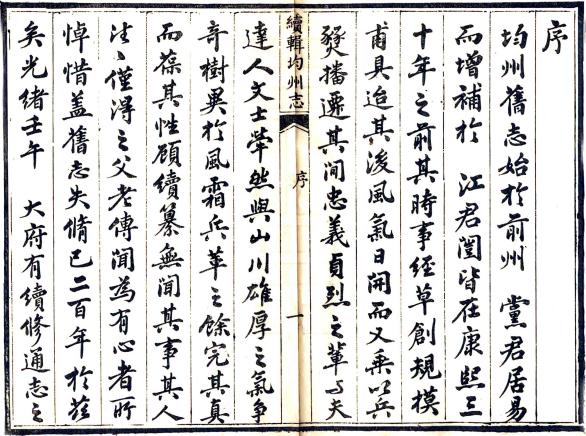 序
均州舊志始於前州　黨君居易
而增補於　江君闓皆在康熙三
十年之前其時事經草創規模
甫具迨其後風氣日開而又乗以兵
燹播遷其间忠義貞烈之輩与夫
續輯均州志
序
一
達人文士犖然與山川雄厚之氣爭
奇樹異於風霜兵革之餘完其真
而葆其性顧續纂無聞其事其人
往〻僅淂之父老傳聞為有心者所
悼惜盖舊志失脩已二百年於茲
矣光緒壬午　大府有續修通志之